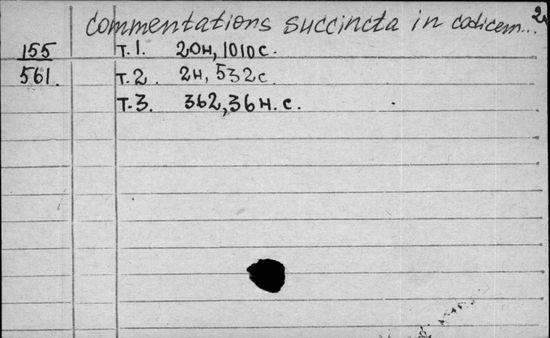 2
Commentations succincta in codicem...
155 Т.1. 20н, 1010 с.
561. Т.2. 2н, 532 с
Т.3. 362, 36 н. с.